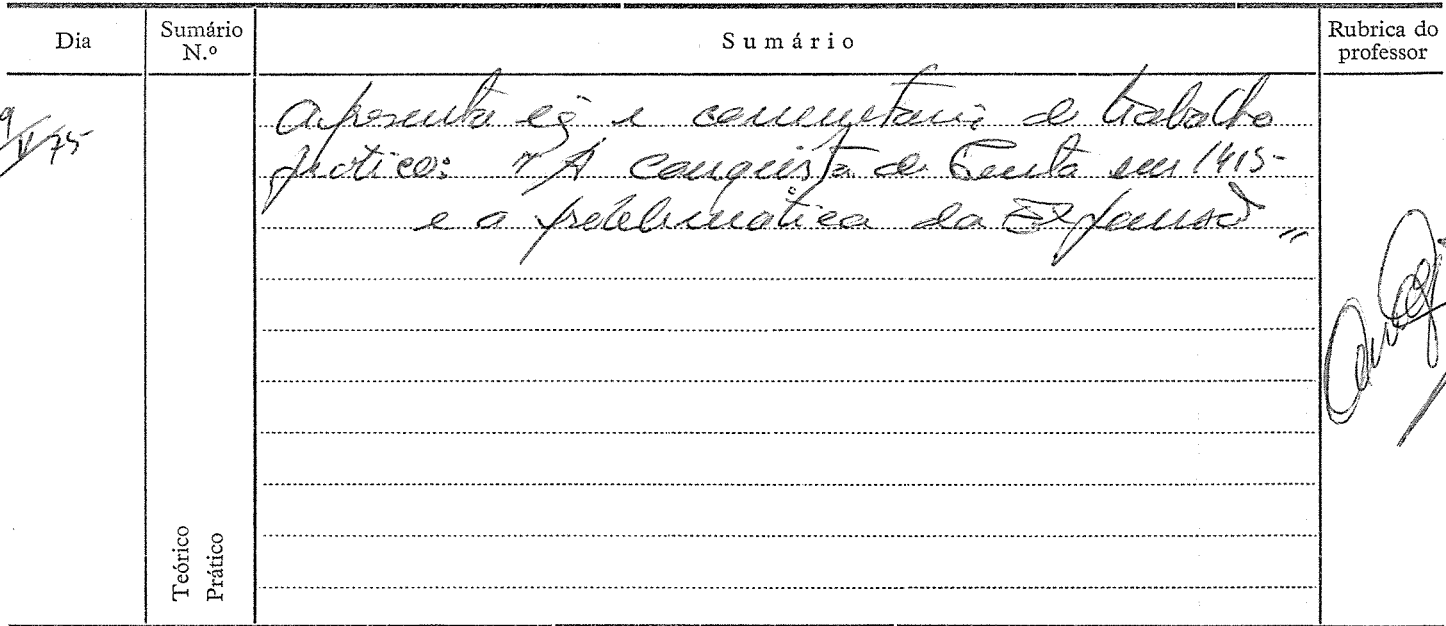 Dia
Sumário N.º
Sumário
Rubrica do professor
9/V/75
Apresentação e comentário de trabalho
prático: "A conquista de Ceuta em 1415-
e a problemática da Expansão"
Teórico
Prático